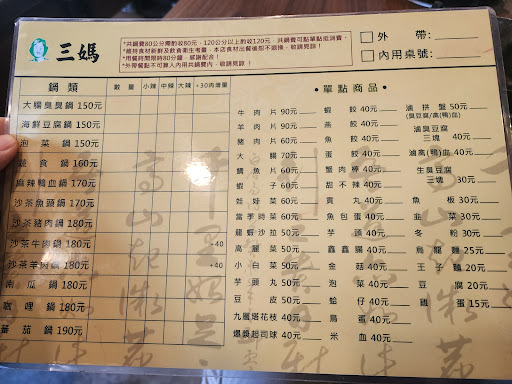 三媽
*共鍋費80公分獨酌收80元，120公分以上酌收120元，共鍋費可點單點抵消費。
*維持食材新鮮及飲食衛生考量，本店食材出餐後恕不退換，敬請見諒！
*用餐時間限時80分鐘，感謝配合！
*外帶餐點不可算人內用共鍋費內，敬請見諒！
外 帶:
內用桌號:
鍋類 數量 小辣 中辣 大辣 +30肉增量
大腸臭臭鍋 150元
海鮮豆腐鍋 150元
泡菜鍋 150元
蔬食鍋 160元
麻辣鴨血鍋 170元
沙茶魚頭鍋 170元
沙茶豬肉鍋 180元
沙茶牛肉鍋 180元 +40
沙茶羊肉鍋 180元 +40
南瓜鍋 180元
咖哩鍋 180元
蕃茄鍋 190元
•單點商品•
牛肉片 90元
羊肉片 90元
豬肉片 60元
大腸 70元
鯛魚片 60元
蝦子 60元
娃娃菜 60元
當季時菜 60元
龍蝦沙拉 50元
高麗菜 50元
小白菜 50元
芋頭丸 50元
豆皮 50元
九層塔花枝 40元
爆漿起司球 40元
蝦餃 40元
燕餃 40元
魚餃 40元
蛋餃 40元
蟹肉棒 40元
甜不辣 40元
貢丸 40元
魚包蛋 40元
芋頭 40元
鑫鑫腸 40元
金菇 40元
泡菜 40元
蛤仔 40元
鳥蛋 40元
米血 40元
滷拼盤 50元
(臭豆腐/高(鴨)血)
滷臭豆腐
三塊 40元
滷高(鴨)血 40元
生臭豆腐
三塊 30元
魚板 30元
韭菜 30元
冬粉 30元
烏龍麵 25元
王子麵 20元
豆腐 20元
雞蛋 15元